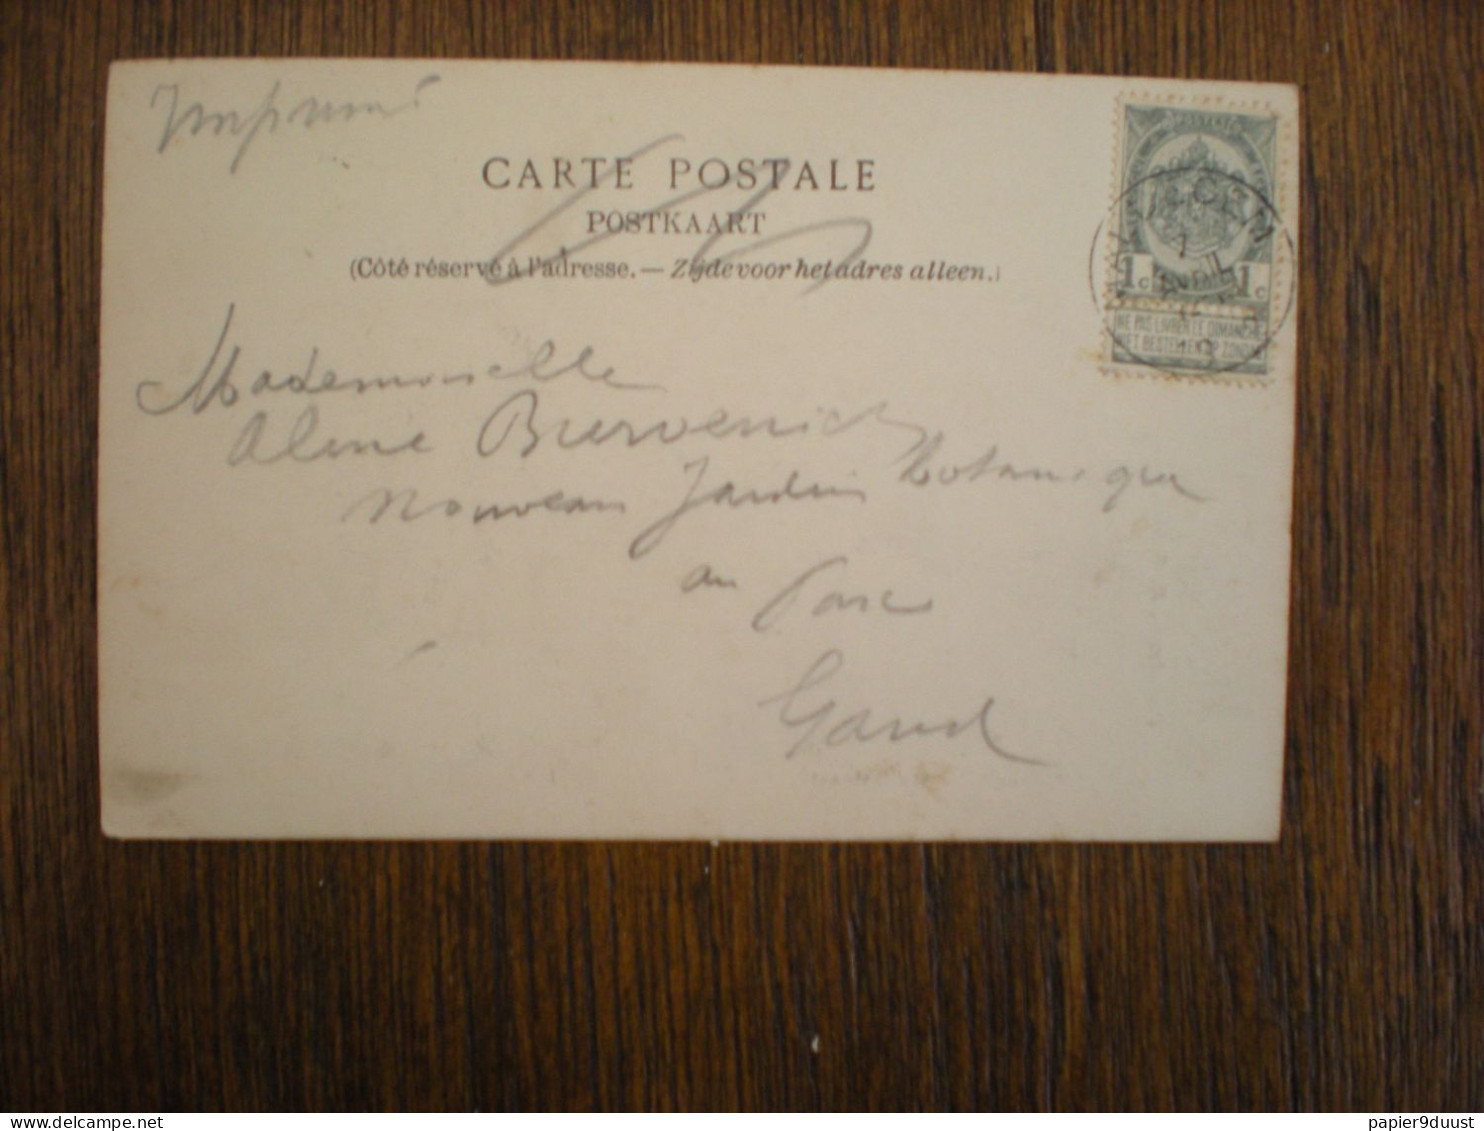 Imprimé
CARTE POSTALE
POSTKAART
(Côté réservé à l'adresse. — Zijde voor het adres alleen.)
POSTERIJ
1c 1c
NE PAS LIVRER LE DIMANCHE
NIET BESTELLEN OP ZONDAG
Mademoiselle
Aline Burvenich
Nouveau Jardin Botanique
au Parc
Gand
papier9duust